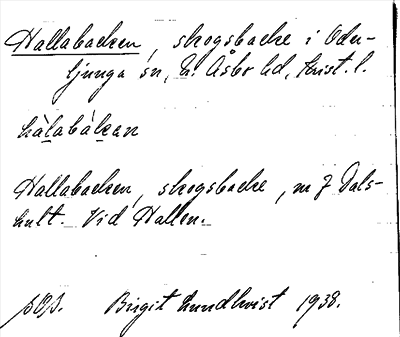 Hallabacken, skogsbacke i Oder-
ljunga sn, N. Åsbo hd, Krist. l.
hàlabàkan
Hallabacken, skogsbacke, nv Dals-
hult. Vid Hallen.
Birgit Lundkvist 1938.